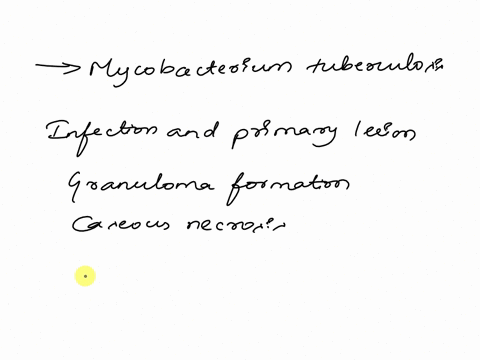 → Mycobacterium tuberculosis
Infection and primary lesion
Granuloma formation
Caseous necrosis